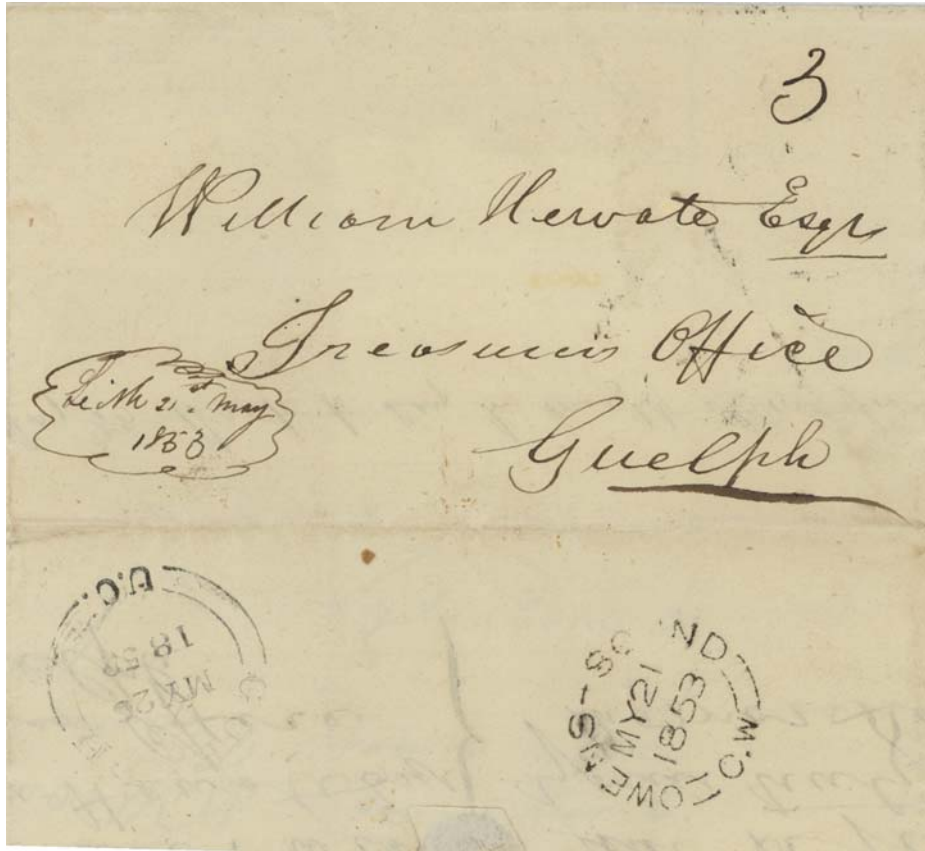 3
William Hewate Esqr
Treasurers Office
Guelph
Leith 21st May
1853
U.C.
MY 26
1853
OWENS-SOUND C.W
MY 21
1853